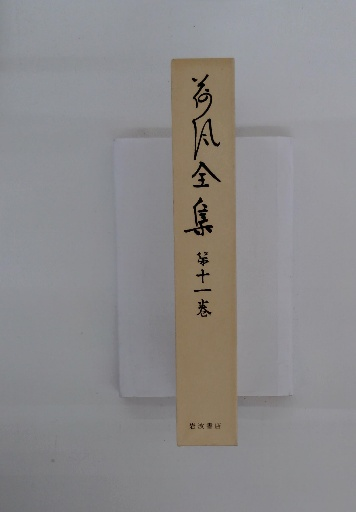 荷风全集
第十一巻
岩波書店